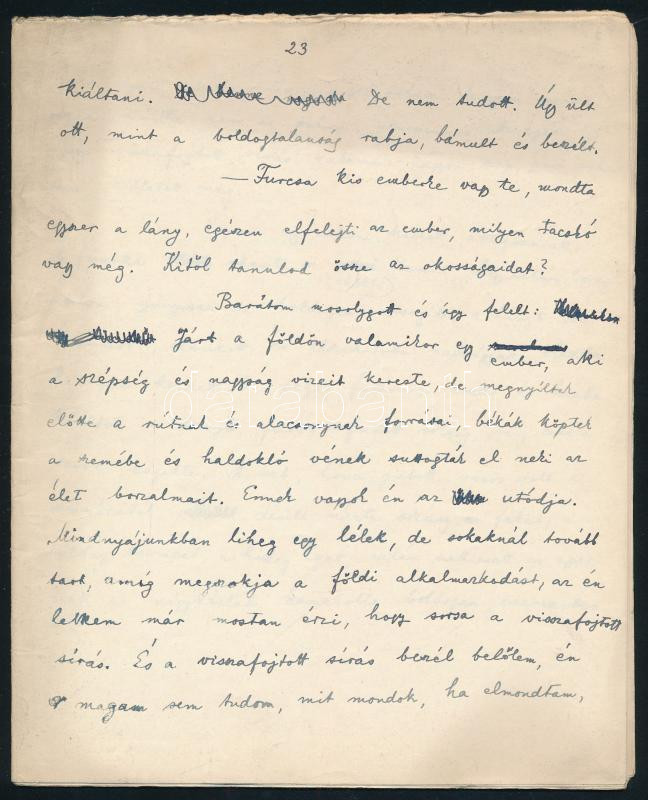 23
kiáltani. De nem tudott. Úgy ült
ott, mint a boldogtalanság rabja, bámult és beszélt.
— Furcsa kis emberke vagy te, mondta
egyszer a lány, egészen elfelejti az ember, milyen facskó
vagy még. Kitől tanulod össze az okosságaidat?
Barátom mosolygott és úgy felelt:
Járt a földön valamikor egy ember, aki
a szépség és nagyság vizeit kereste, de megnyíltak
előtte a rútnak és alacsonynak forrásai, békák köptek
a szemébe és haldokló vének suttogták el neki az
élet borzalmait. Ennek vagyok én az utódja.
Mindnyájunkban liheg egy lélek, de sokaknál tovább
tart, amíg megszokja a földi alkalmazkodást, az én
lelkem már mostan érzi, hogy sorsa a visszafojtott
sírás. És a visszafojtott sírás beszél belőlem, én
magam sem tudom, mit mondok, ha elmondtam,
darabanth